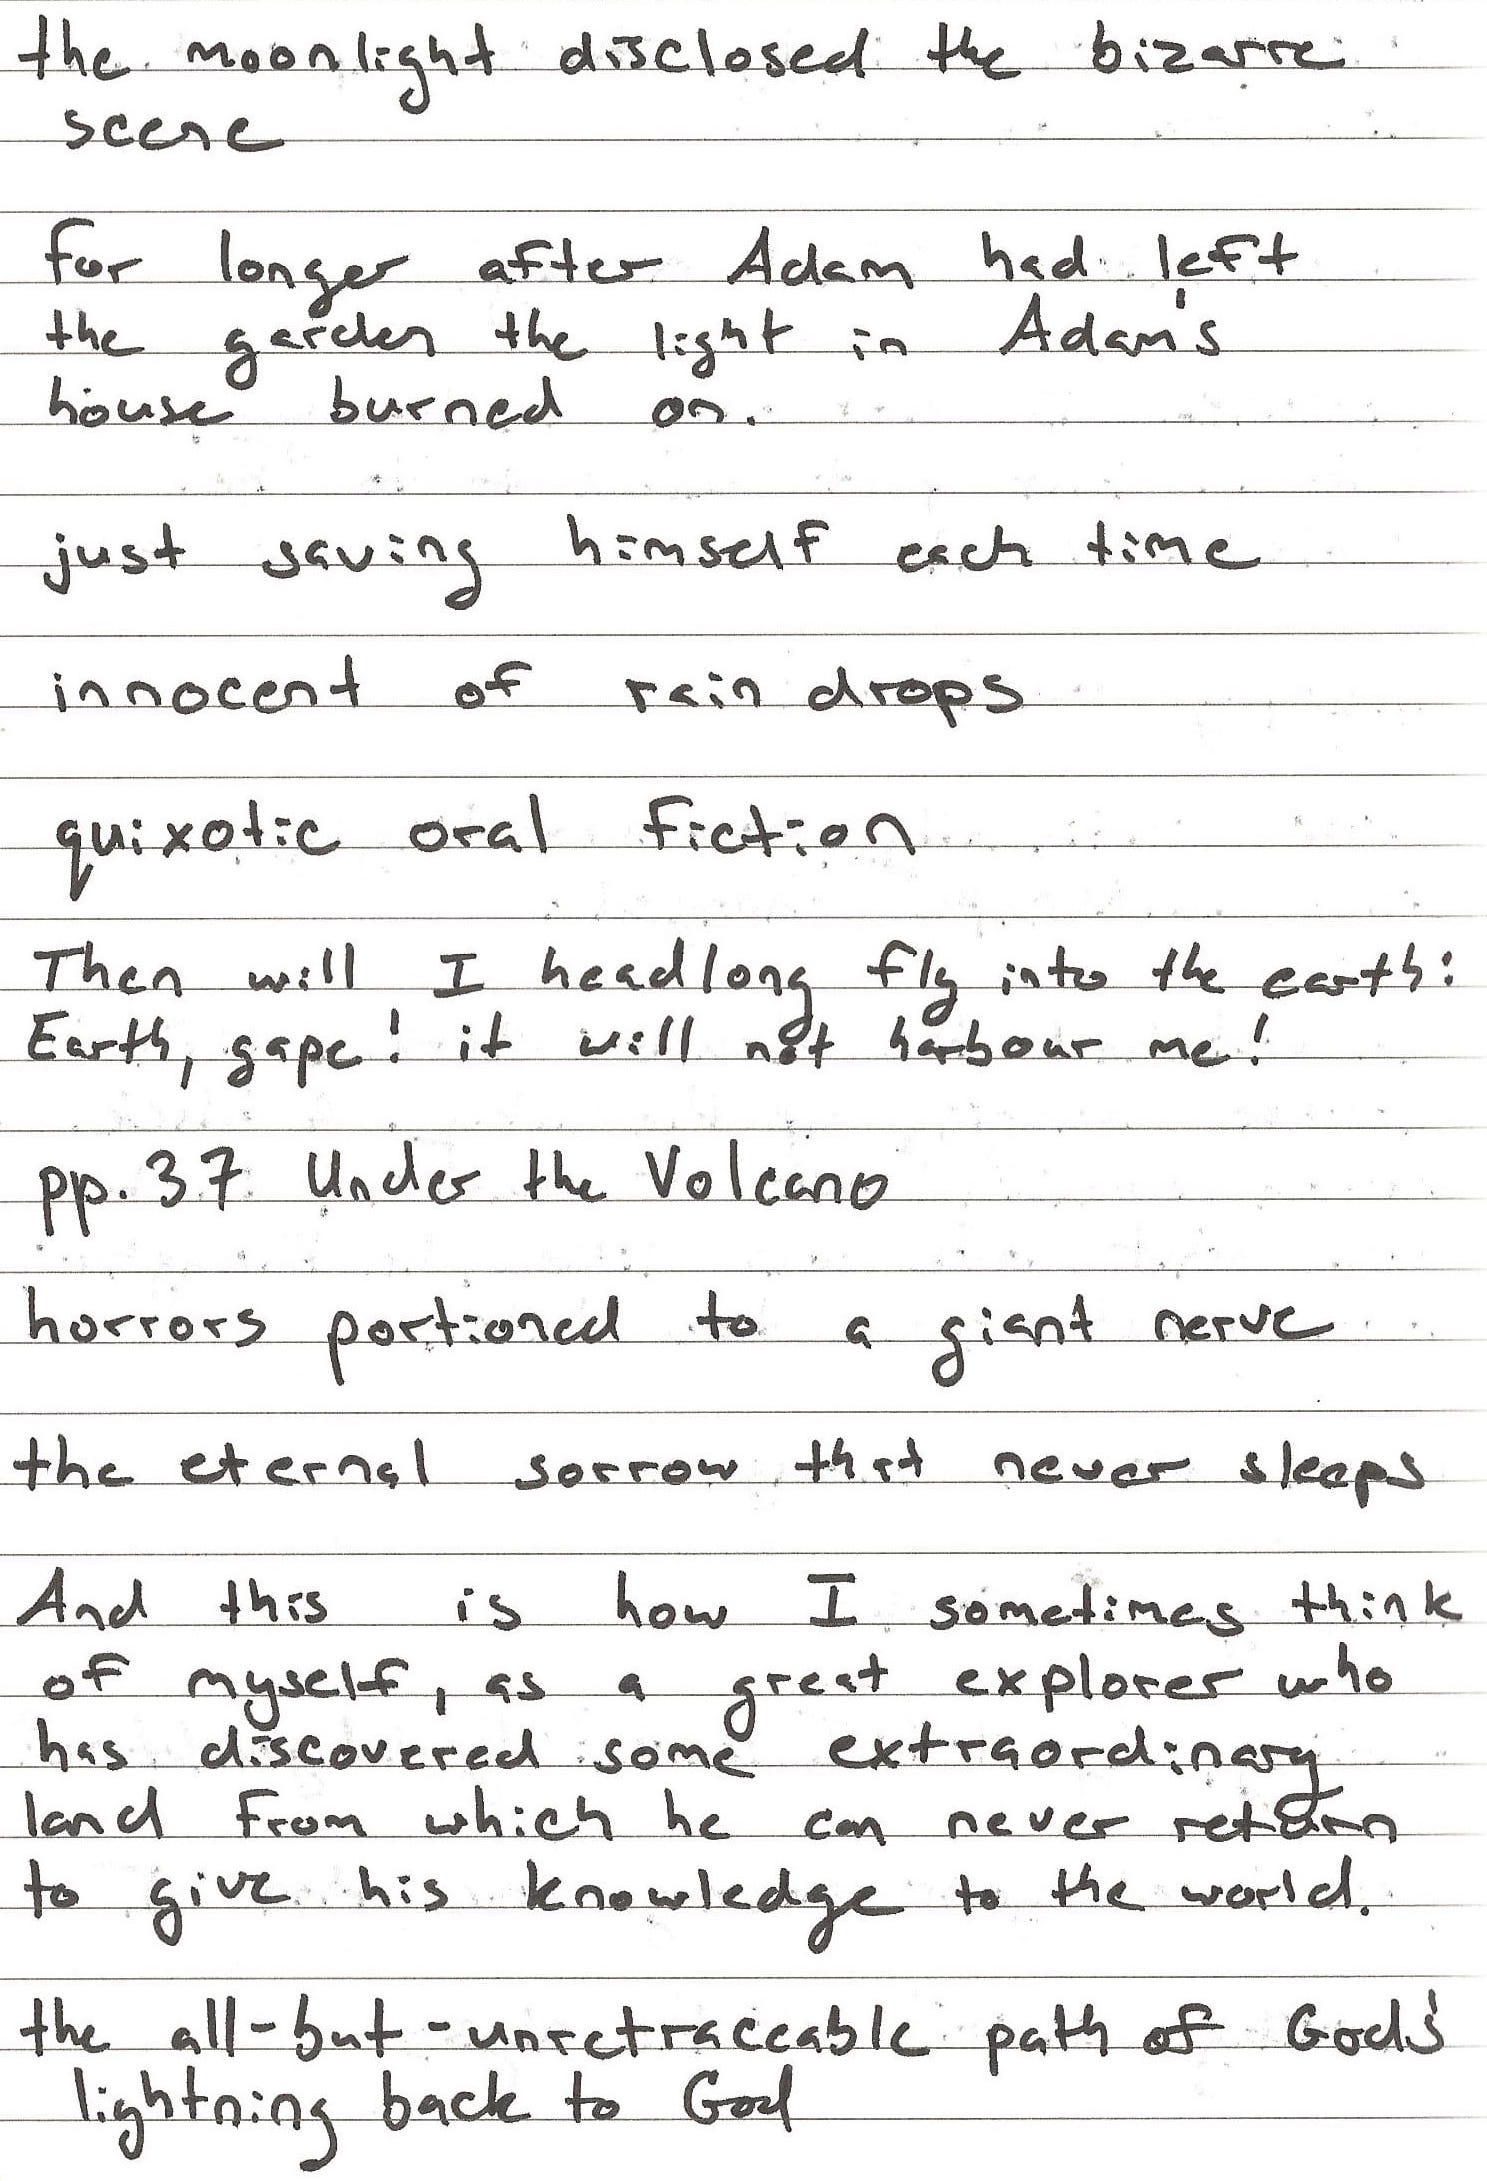 the moonlight disclosed the bizarre
scene
for longer after Adam had left
the garden the light in Adam's
house burned on.
just saving himself each time
innocent of rain drops
quixotic oral fiction
Then will I headlong fly into the earth:
Earth, gape! it will not harbour me!
pp. 37 Under the Volcano
horrors portioned to a giant nerve
the eternal sorrow that never sleeps
And this is how I sometimes think
of myself, as a great explorer who
has discovered some extraordinary
land from which he can never return
to give his knowledge to the world.
the all-but-unretraceable path of God's
lightning back to God